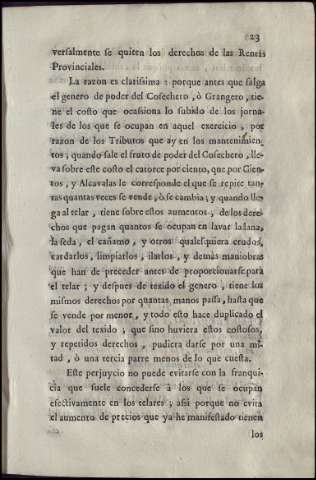 23
versalmente se quiten los derechos de las Rentas
Provinciales.
La razon es clarissima : porque antes que salga
el genero de poder del Cosechero, ò Grangero, tie-
ne el costo que ocasiona lo subido de los jorna-
les de los que se ocupan en aquel exercicio, por
razon de los Tributos que ay en los mantenimien-
tos ; quando sale el fruto de poder del Cosechero, lle-
va sobre este costo el catorce por ciento, que por Cien-
tos, y Alcavalas le corresponde el que se repite tan-
tas quantas veces se vende, ò se cambia ; y quando lle-
ga al telar, tiene sobre estos aumentos, de los dere-
chos que pagan quantos se ocupan en lavar la lana,
la seda, el cañamo, y otros qualesquiera crudos,
cardarlos, limpiarlos, ilarlos, y demàs maniobras
que han de preceder antes de proporcionarse para
el telar ; y despues de texido el genero, tiene los
mismos derechos por quantas manos passa, hasta que
se vende por menor, y todo esto hace duplicado el
valor del texido ; que sino huviera estos costosos,
y repetidos derechos, pudiera darse por una mi-
tad, ò una tercia parte menos de lo que cuesta.
Este perjuycio no puede evitarse con la franqui-
cia que suele concederse à los que se ocupan
efectivamente en los telares ; assi porque no evita
el aumento de precios que ya he manifestado tienen
los